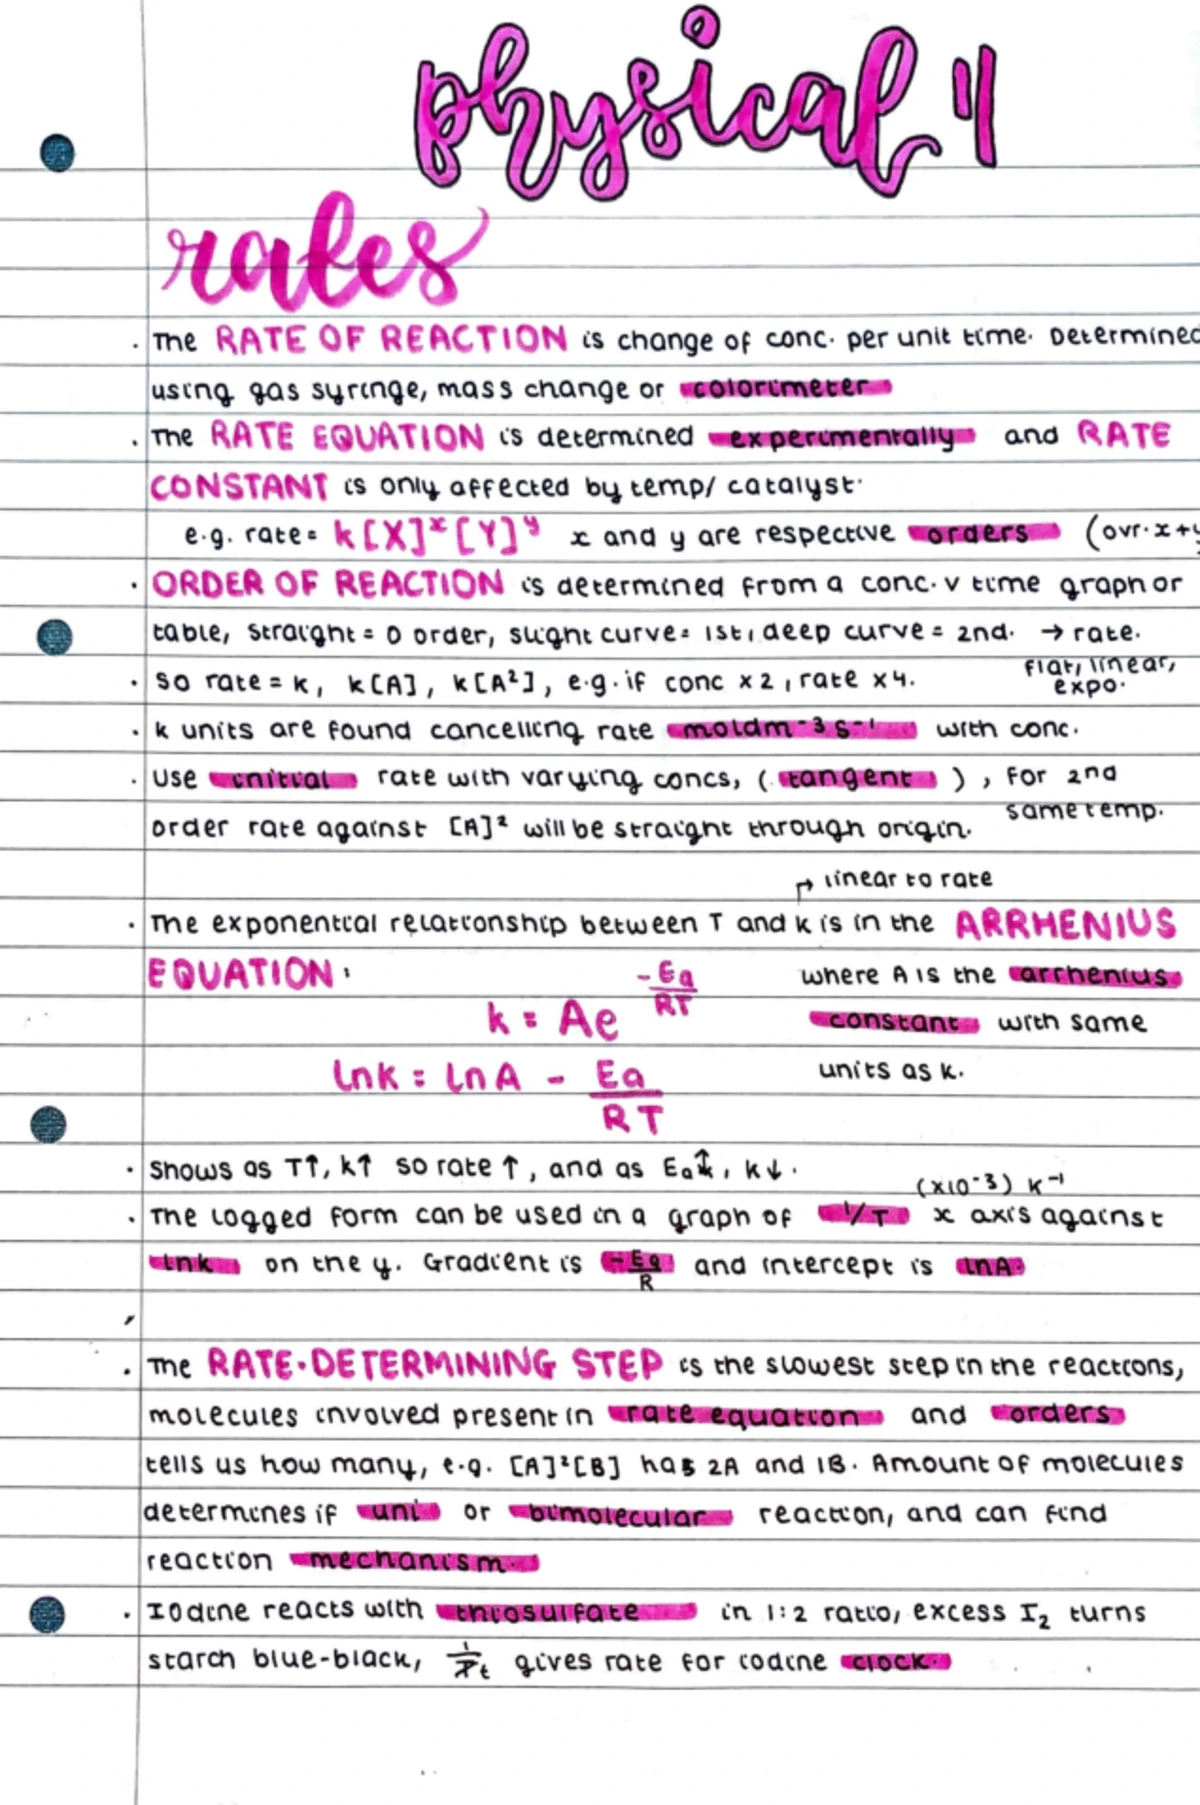 physical 11
rates
· The RATE OF REACTION is change of conc. per unit time. Determined
using gas syringe, mass change or colorimeter
· The RATE EQUATION is determined experimentally and RATE
CONSTANT is only affected by temp/ catalyst.
e.g. rate = k[X]ˣ[Y]ʸ x and y are respective orders (ovr. x+y
· ORDER OF REACTION is determined from a conc. v time graph or
table, straight = 0 order, slight curve = 1st, deep curve = 2nd. → rate.
flat, linear,
expo.
· So rate = k, k[A], k[A²], e.g. if conc x2, rate x4.
· k units are found cancelling rate moldm⁻³s⁻¹ with conc.
· Use initial rate with varying concs, (tangent), for 2nd
same temp.
order rate against [A]² will be straight through origin.
↱ linear to rate
· The exponential relationship between T and k is in the ARRHENIUS
EQUATION: where A is the arrhenius
k = Ae^(-Ea/RT) constant with same
lnk = lnA - Ea/RT units as k.
· Shows as T↑, k↑ so rate ↑, and as Ea↑, k↓.
(x10⁻³) K⁻¹
· The logged form can be used in a graph of 1/T x axis against
lnk on the y. Gradient is -Ea/R and intercept is lnA.
· The RATE-DETERMINING STEP is the slowest step in the reactions,
molecules involved present in rate equation and orders
tells us how many, e.g. [A]²[B] has 2A and 1B. Amount of molecules
determines if uni or bimolecular reaction, and can find
reaction mechanism.
· Iodine reacts with thiosulfate in 1:2 ratio, excess I₂ turns
starch blue-black, 1/t gives rate for iodine clock.